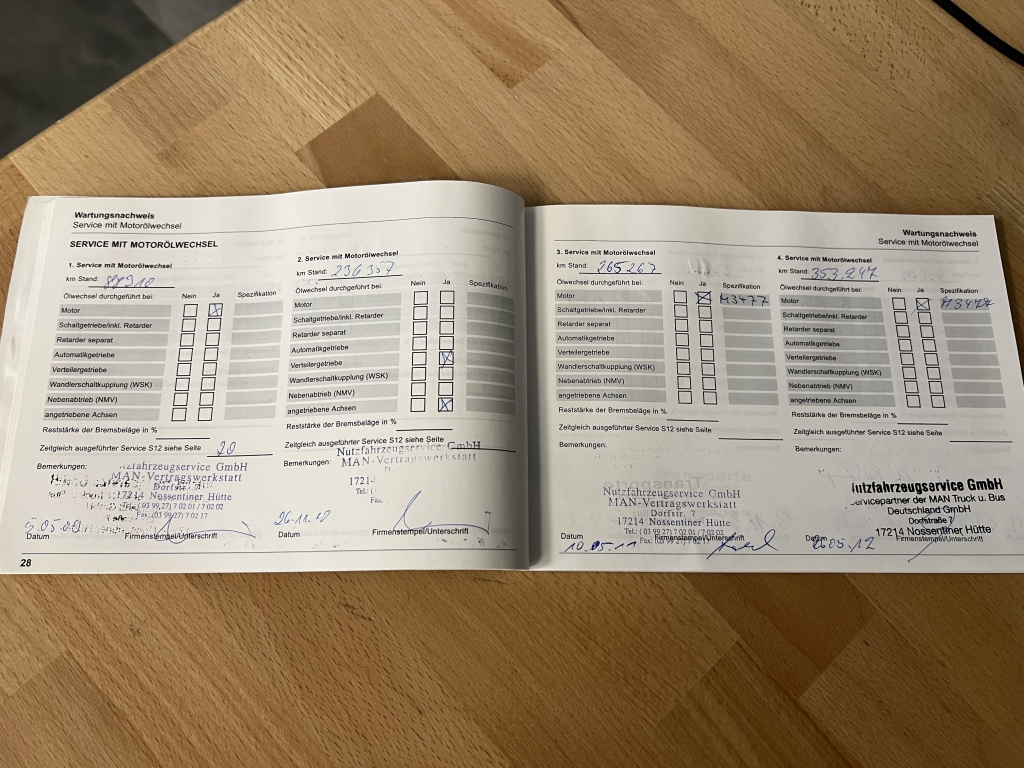 Wartungsnachweis
Service mit Motorölwechsel
SERVICE MIT MOTORÖLWECHSEL
1. Service mit Motorölwechsel
km Stand:
Ölwechsel durchgeführt bei: Nein Ja Spezifikation
Motor
Schaltgetriebe/inkl. Retarder
Retarder separat
Automatikgetriebe
Verteilergetriebe
Wandlerschaltkupplung (WSK)
Nebenabtrieb (NMV)
angetriebene Achsen
Reststärke der Bremsbeläge in %
Zeitgleich ausgeführter Service S12 siehe Seite 20
Bemerkungen:
Nutzfahrzeugservice GmbH
MAN-Vertragswerkstatt
Dorfstr. 7
17214 Nossentiner Hütte
Tel.: (03 99 27) 7 02 01 / 7 02 02
Fax: (03 99 27) 7 02 17
Datum Firmenstempel/Unterschrift
28
2. Service mit Motorölwechsel
km Stand: 236 357
Ölwechsel durchgeführt bei: Nein Ja Spezifikation
Motor
Schaltgetriebe/inkl. Retarder
Retarder separat
Automatikgetriebe
Verteilergetriebe
Wandlerschaltkupplung (WSK)
Nebenabtrieb (NMV)
angetriebene Achsen
Reststärke der Bremsbeläge in %
Zeitgleich ausgeführter Service S12 siehe Seite
Bemerkungen:
Nutzfahrzeugservice GmbH
MAN-Vertragswerkstatt
1721
Tel.: (
Fax
26.11.10
Datum Firmenstempel/Unterschrift
Wartungsnachweis
Service mit Motorölwechsel
3. Service mit Motorölwechsel
km Stand: 265 267
Ölwechsel durchgeführt bei: Nein Ja Spezifikation
Motor M3477
Schaltgetriebe/inkl. Retarder
Retarder separat
Automatikgetriebe
Verteilergetriebe
Wandlerschaltkupplung (WSK)
Nebenabtrieb (NMV)
angetriebene Achsen
Reststärke der Bremsbeläge in %
Zeitgleich ausgeführter Service S12 siehe Seite
Bemerkungen:
Nutzfahrzeugservice GmbH
MAN-Vertragswerkstatt
Dorfstr. 7
17214 Nossentiner Hütte
Tel.: (03 99 27) 7 02 01 / 7 02 02
Fax: (03 99 27) 7 02 17
Datum Firmenstempel/Unterschrift
10.05.11
4. Service mit Motorölwechsel
km Stand: 353.247
Ölwechsel durchgeführt bei: Nein Ja Spezifikation
Motor M3477
Schaltgetriebe/inkl. Retarder
Retarder separat
Automatikgetriebe
Verteilergetriebe
Wandlerschaltkupplung (WSK)
Nebenabtrieb (NMV)
angetriebene Achsen
Reststärke der Bremsbeläge in %
Zeitgleich ausgeführter Service S12 siehe Seite
Bemerkungen:
Nutzfahrzeugservice GmbH
Servicepartner der MAN Truck u. Bus
Deutschland GmbH
Dorfstraße 7
17214 Nossentiner Hütte
Datum Firmenstempel/Unterschrift